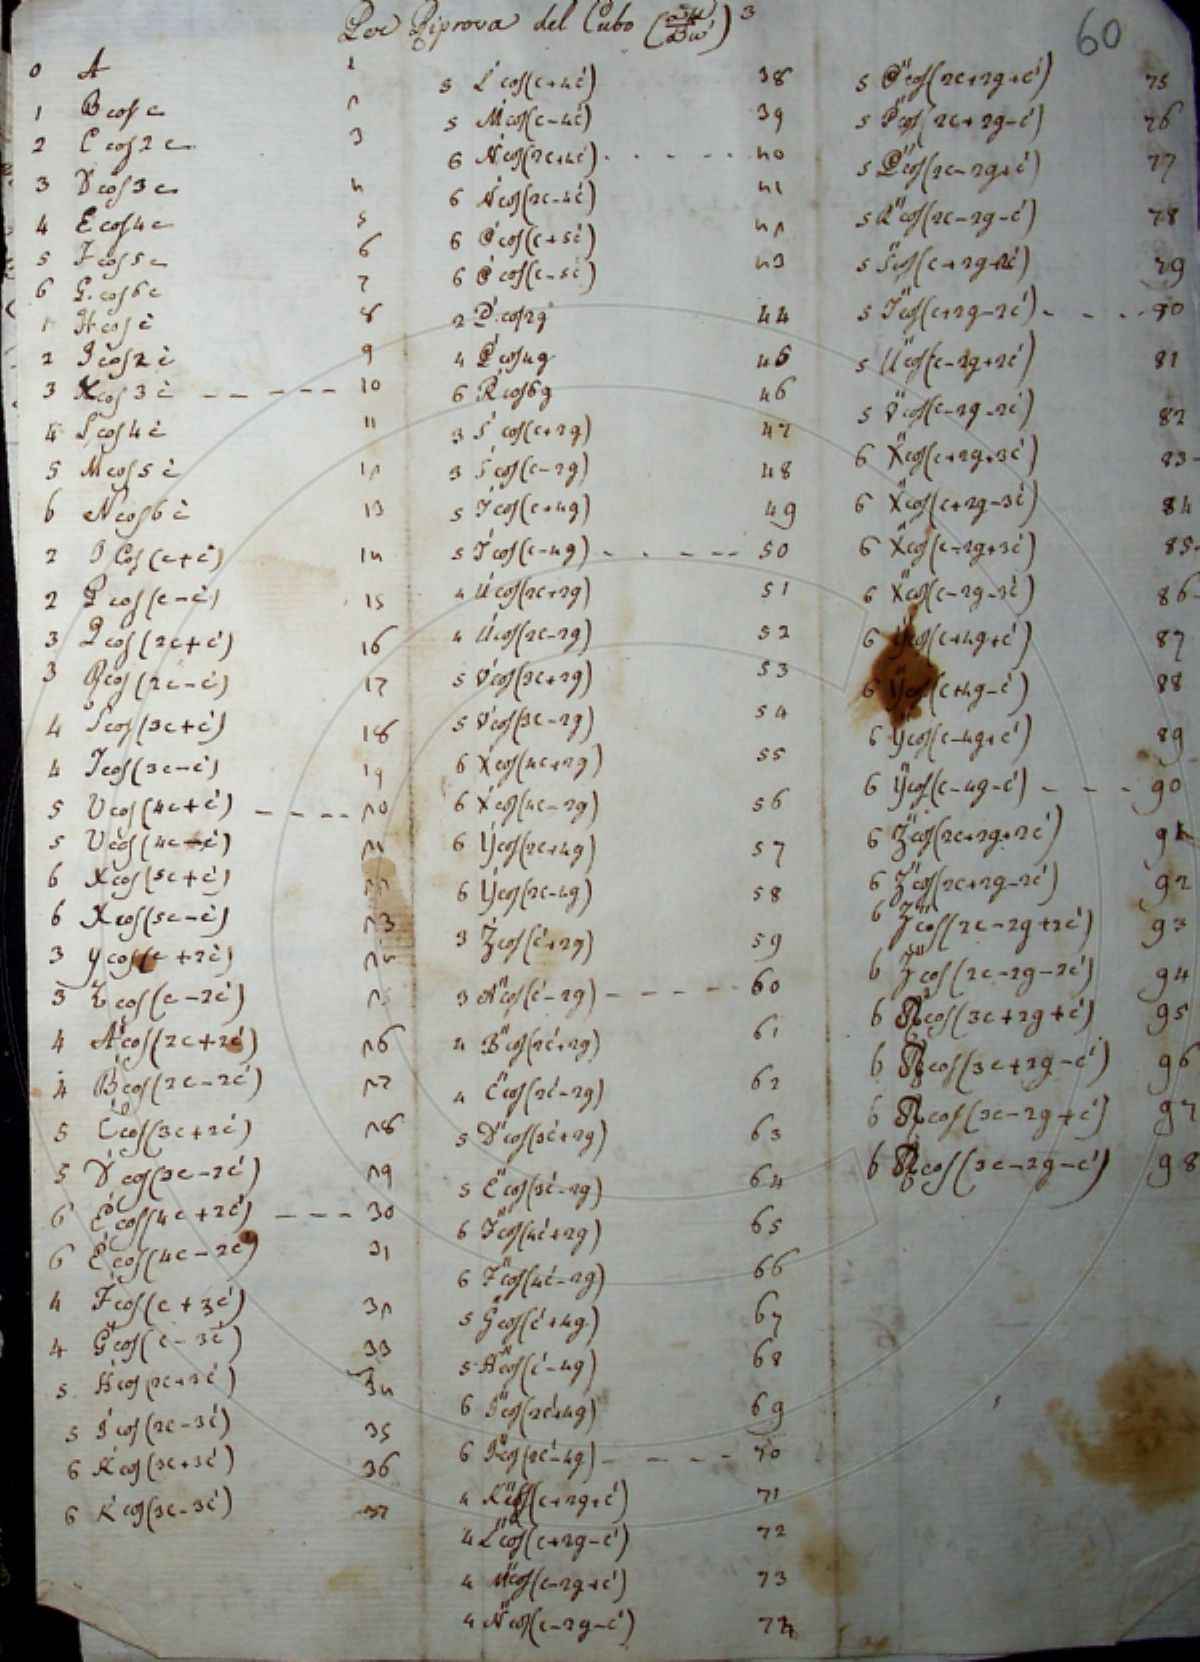 Per Riprova del Cubo ( )³
60
0 A 1
1 B cos c 2
2 C cos 2c 3
3 D cos 3c 4
4 E cos 4c 5
5 F cos 5c 6
6 G cos 6c 7
1 H cos c' 8
2 I cos 2c' 9
3 K cos 3c' - - - - - - 10
4 L cos 4c' 11
5 M cos 5c' 12
6 N cos 6c' 13
2 O Cos (c+c') 14
2 P cos (c-c') 15
3 Q cos (2c+c') 16
3 R cos (2c-c') 17
4 S cos (3c+c') 18
4 T cos (3c-c') 19
5 U cos (4c+c') - - - - 20
5 U cos (4c-c') 21
6 X cos (5c+c') 22
6 X cos (5c-c') 23
3 Y cos (c+2c') 24
3 Z cos (c-2c') 25
4 A' cos (2c+2c') 26
4 B' cos (2c-2c') 27
5 C' cos (3c+2c') 28
5 D' cos (3c-2c') 29
6 E' cos (4c+2c') - - - 30
6 E' cos (4c-2c') 31
4 F' cos (c+3c') 32
4 G' cos (c-3c') 33
5 H' cos (2c+3c') 34
5 I' cos (2c-3c') 35
6 K' cos (3c+3c') 36
6 K' cos (3c-3c') 37
5 L' cos (c+4c') 38
5 M' cos (c-4c') 39
6 N' cos (2c+4c') - - - - - 40
6 N' cos (2c-4c') 41
6 O' cos (c+5c') 42
6 O' cos (c-5c') 43
2 P' cos 2g 44
4 Q' cos 4g 45
6 R' cos 6g 46
3 S' cos (c+2g) 47
3 S' cos (c-2g) 48
5 T' cos (c+4g) 49
5 T' cos (c-4g) - - - - - 50
4 U' cos (2c+2g) 51
4 U' cos (2c-2g) 52
5 V' cos (3c+2g) 53
5 V' cos (3c-2g) 54
6 X' cos (4c+2g) 55
6 X' cos (4c-2g) 56
6 Y' cos (2c+4g) 57
6 Y' cos (2c-4g) 58
3 Z' cos (c'+2g) 59
3 A'' cos (c'-2g) - - - - - 60
4 B'' cos (2c'+2g) 61
4 C'' cos (2c'-2g) 62
5 D'' cos (3c'+2g) 63
5 E'' cos (3c'-2g) 64
6 F'' cos (4c'+2g) 65
6 F'' cos (4c'-2g) 66
5 G'' cos (c'+4g) 67
5 H'' cos (c'-4g) 68
6 I'' cos (2c'+4g) 69
6 I'' cos (2c'-4g) - - - - 70
4 K'' cos (c+2g+c') 71
4 L'' cos (c+2g-c') 72
4 M'' cos (c-2g+c') 73
4 N'' cos (c-2g-c') 74
5 O'' cos (2c+2g+c') 75
5 P'' cos (2c+2g-c') 76
5 Q'' cos (2c-2g+c') 77
5 R'' cos (2c-2g-c') 78
5 S'' cos (c+2g+2c') 79
5 T'' cos (c+2g-2c') - - - - 80
5 U'' cos (c-2g+2c') 81
5 V'' cos (c-2g-2c') 82
6 X'' cos (c+2g+3c') 83
6 X'' cos (c+2g-3c') 84
6 X'' cos (c-2g+3c') 85
6 X'' cos (c-2g-3c') 86
6 Y'' cos (c+4g+c') 87
6 Y'' cos (c+4g-c') 88
6 Y'' cos (c-4g+c') 89
6 Y'' cos (c-4g-c') - - - - 90
6 Z'' cos (2c+2g+2c') 91
6 Z'' cos (2c+2g-2c') 92
6 Z'' cos (2c-2g+2c') 93
6 Z'' cos (2c-2g-2c') 94
6 cos (3c+2g+c') 95
6 cos (3c+2g-c') 96
6 cos (3c-2g+c') 97
6 cos (3c-2g-c') 98